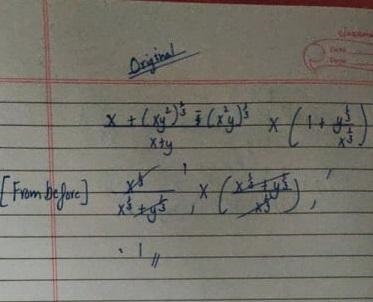 Original
x + (xy²)^⅓ - (x²y)^⅓ / x+y × (1 + y^⅓ / x^⅓)
[From before] x^⅓ / x^⅓ + y^⅓ × (x^⅓ + y^⅓ / x^⅓)
1 //